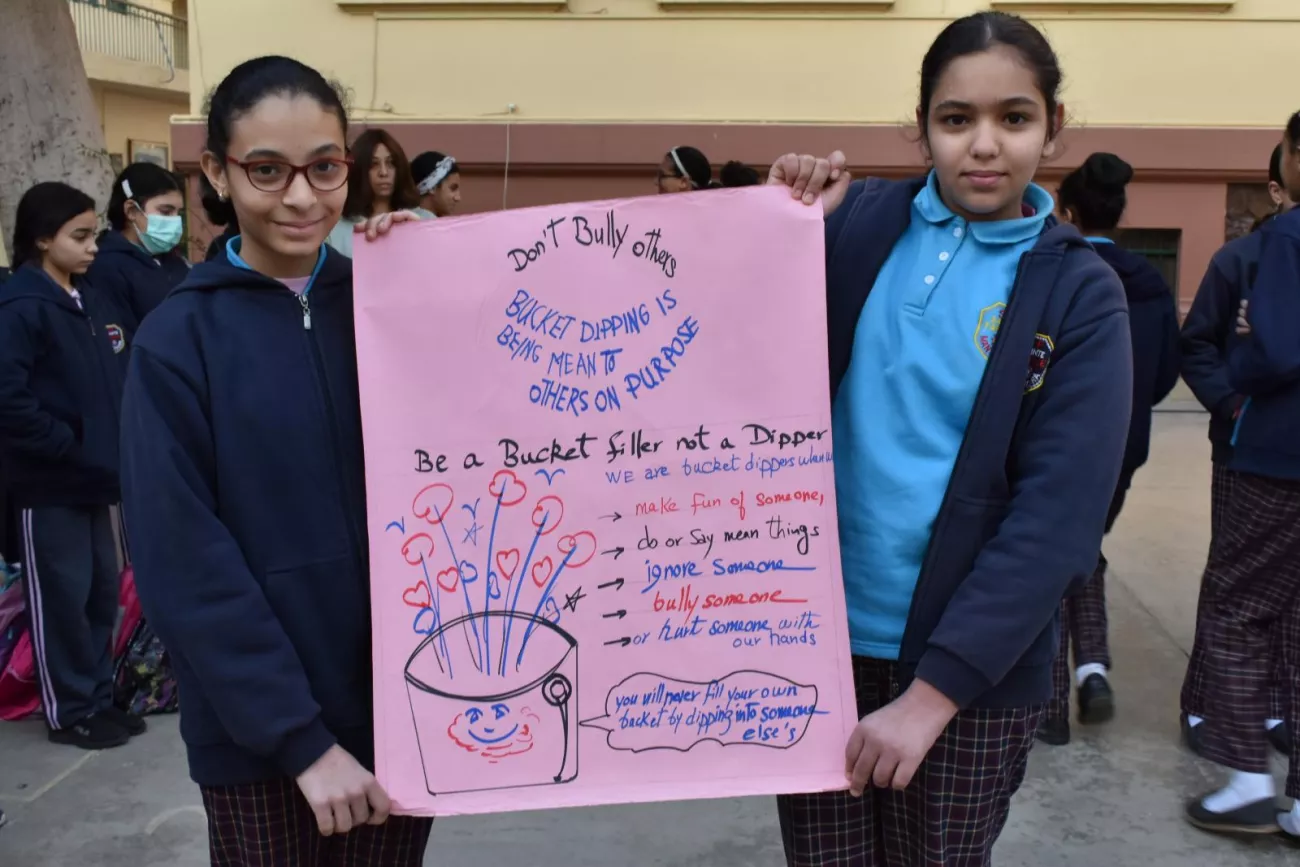 Don't Bully others
BUCKET DIPPING IS
BEING MEAN TO
OTHERS ON PURPOSE
Be a Bucket filler not a Dipper
WE are bucket dippers when w
→ make fun of someone,
→ do or say mean things
→ ignore someone
→ bully someone
→ or hurt someone with
our hands
you will never fill your own
bucket by dipping into someone
else's